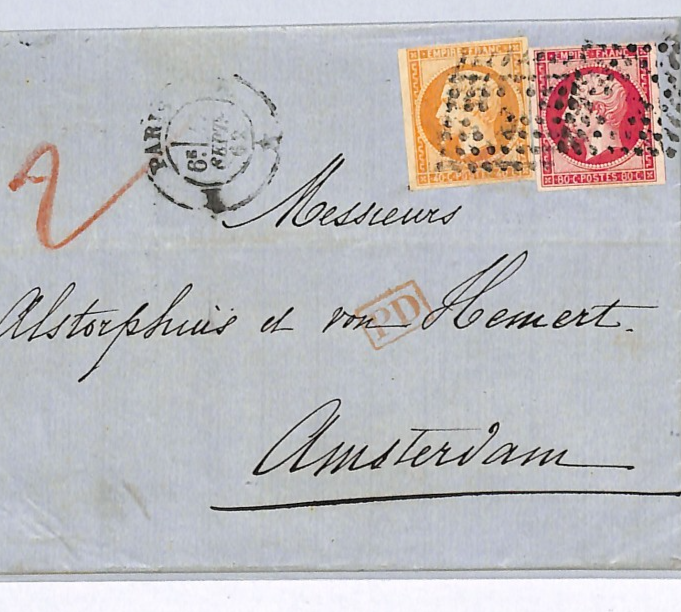 EMPIRE FRANC
EMPIRE FRANC
40·C·POSTES
80·C·POSTES·80·C
PARIS
6E
SEPT
62
2
Messieurs
Alstorphius et von Hemert.
PD
Amsterdam